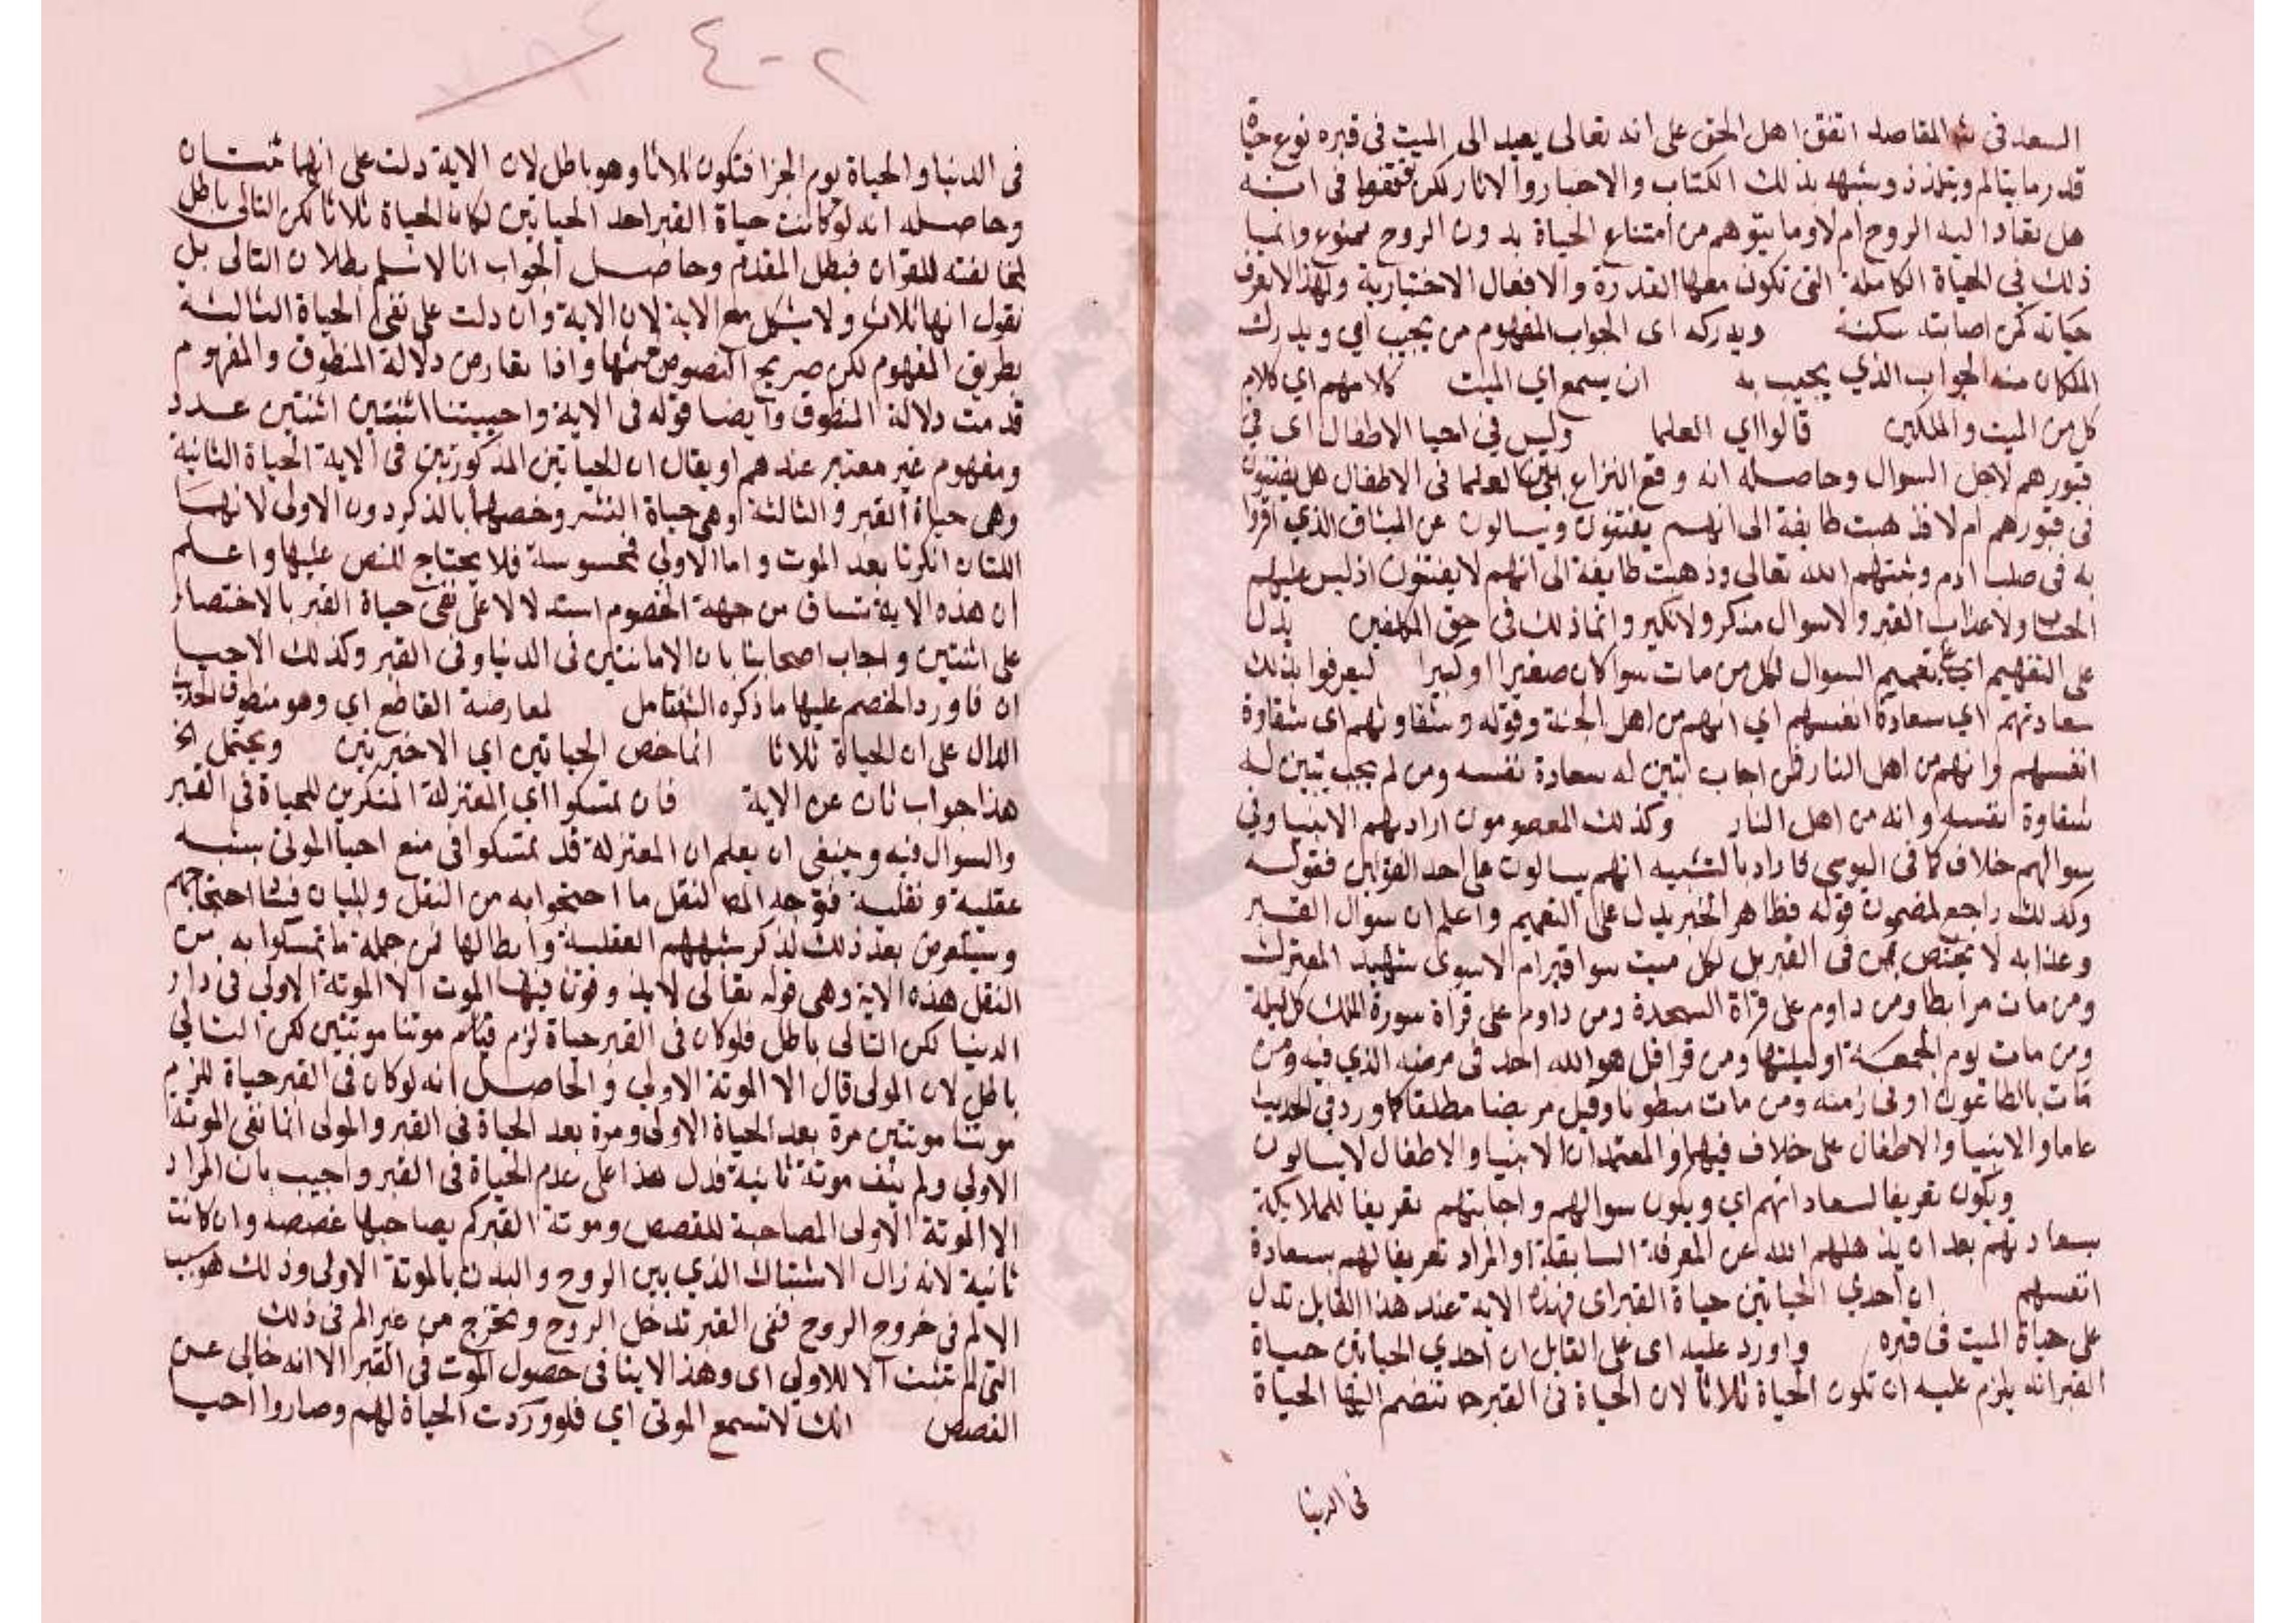 السعد في شر المقاصد اتفق اهل الحق على انه تعالى يعيد الى الميت في قبره نوع حياة
قدر ما يتالم ويتلذذ ويشهد بذلك الكتاب والاخبار والاثار لكن توقفوا في انه
هل تعاد اليه الروح ام لا وما يتوهم من امتناع الحياة بدون الروح ممنوع وانما
ذلك في الحياة الكاملة التي تكون معها القدرة والافعال الاختيارية ولهذا لا يعرف
حياته كمن اصابته سكتة ويدركه اى الجواب المفهوم من يجيب اي ويدرك
الملكان منه الجواب الذي يجيب به ان يسمع اي الميت كلامهم اي كلام
كل من الميت والملكين قالوا اي العلما وليس في احيا الاطفال اى في
قبورهم لاجل السوال وحاصله انه وقع النزاع بين العلما في الاطفال هل يفتنون
في قبورهم ام لا فذهبت طايفة الى انهم يفتنون ويسالون عن الميثاق الذي اقروا
به في صلب ادم الله تعالى وذهبت طايفة الى انهم لا يفتنون اذ ليس عليهم
الحساب ولا عذاب القبر ولا سوال منكر ولا نكير وانما ذلك في حق المكلفين يدل
على التفهيم اي تعميم السوال لكل من مات سوا كان صغيرا او كبيرا ليعرفوا بذلك
سعادتهم اي سعادة انفسهم اي انهم من اهل الجنة وقوله وشقاوتهم اى شقاوة
انفسهم وانهم من اهل النار فمن اجاب تبين له سعادة نفسه ومن لم يجب تبين له
شقاوة نفسه وانه من اهل النار وكذلك المعصومون اراد بهم الانبيا وفي
سوالهم خلاف كما في اليوسي فاراد بالتشبيه انهم يسالون على احد القولين فقوله
وكذلك راجع لمضمون قوله فظاهر الخبر يدل على التعميم واعلم ان سوال القبر
وعذابه لا يختص بمن في القبر بل لكل ميت سوا قبر ام لا سوى شهيد المعترك
ومن مات مرابطا ومن داوم على قراة السجدة ومن داوم على قراة سورة الملك كل ليلة
ومن مات يوم الجمعة او ليلتها ومن قرا قل هو الله احد في مرضه الذي فيه ومن
مات بالطاعون او في زمنه ومن مات مبطونا وقيل مريضا مطلقا كما ورد في الحديث
عاما والانبيا والاطفال على خلاف فيهما والمعتمد ان الانبيا والاطفال لا يسالون
ويكون تعريفا لسعاداتهم اي ويكون سوالهم واجابتهم تعريفا للملايكة
بسعادتهم بعد ان يذهلهم الله عن المعرفة السابقة او المراد تعريفا لهم بسعادة
انفسهم ان احدي الحياتين حياة القبر اى فهذه الاية عند هذا القايل تدل
على حياة الميت في قبره واورد عليه اى على القايل ان احدي الحياتين حياة
القبر انه يلزم عليه ان تكون الحياة ثلاثا لان الحياة في القبر ح تنضم اليها الحياة
في الدينا
٢-٤
في الدنيا والحياة يوم الجزا فتكون ثلاثا وهو باطل لان الاية دلت على انهما ثنتان
وحاصله انه لو كانت حياة القبر احد الحياتين لكان الحياة ثلاثا لكن التالى باطل
لمخالفته للقران فبطل المقدم وحاصل الجواب انا لا نسلم بطلان التالى بل
نقول انها ثلاث ولا يشكل مع الاية لان الاية وان دلت على نفى الحياة الثالثة
بطريق المفهوم لكن صريح النصوص واذا تعارض دلالة المنطوق والمفهوم
قدمت دلالة المنطوق وايضا قوله في الاية واحييتنا اثنتين اثنتين عدد
ومفهوم غير معتبر عندهم او يقال ان الحياتين المذكورتين في الاية الحياة الثانية
وهى حياة القبر والثالثة وهي حياة النشر وخصهما بالذكر دون الاولى لانهما
اللتان انكرتا بعد الموت واما الاولي فمحسوسة فلا يحتاج للنص عليها واعلم
ان هذه الاية تساق من جهة الخصوم استدلالا على نفى حياة القبر بالاختصار
على اثنتين واجاب اصحابنا بان الاماتتين في الدنيا وفي القبر وكذلك الاحيا
ان فاورد الخصم عليها ما ذكره الش فتامل لمعارضة القاطع اي وهو منطوق الحديث
الدال على ان الحياة ثلاثا انما خص الحياتين اي الاخيرتين ويحتمل الخ
هذا جواب ثان عن الاية فان تمسكوا اي المعتزلة المنكرين للحياة في القبر
والسوال فيه وينبغى ان يعلم ان المعتزلة قد تمسكوا في منع احيا الموتى بشبه
عقلية ونقلية فتوجه المص لنقل ما احتجوا به من النقل ولبيان احتجاجهم
وسيتعرض بعد ذلك لذكر شبههم العقلية وابطالها فمن جملة ما تمسكوا به من
النقل هذه الاية وهى قوله تعالى لا يذوقون فيها الموت الا الموتة الاولي في دار
الدينيا لكن التالى باطل فلو كان في القبر حياة لزم موتنا موتتين لكن التالي
باطل لان المولى قال الا الموتة الاولي والحاصل انه لو كان في القبر حياة للزم
موتنا موتتين مرة بعد الحياة الاولى ومرة بعد الحياة في القبر والمولى انما نفى الموتة
الاولي ولم ينف موتة ثانية فدل هذا على عدم الحياة في القبر واجيب بان المراد
الا الموتة الاولى المصاحبة للغصص وموتة القبر لم يصاحبها غصصه وان كانت
ثانية لانه زال الاشتباك الذي بين الروح والبدن بالموتة الاولى وذلك هو سبب
الالم في خروج الروح ففى القبر تدخل الروح وتخرج من غير الم في ذلك
التى لم تثبت الا للاولي اى وهذا لا ينا في حصول الموت في القبر الا انه خالي عن
الغصص انك لا تسمع الموتى اي فلو وردت الحياة لهم وصاروا احيا